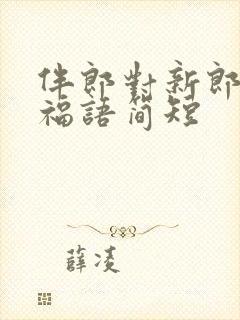 伴郎對新郎
福語简短
薛凌